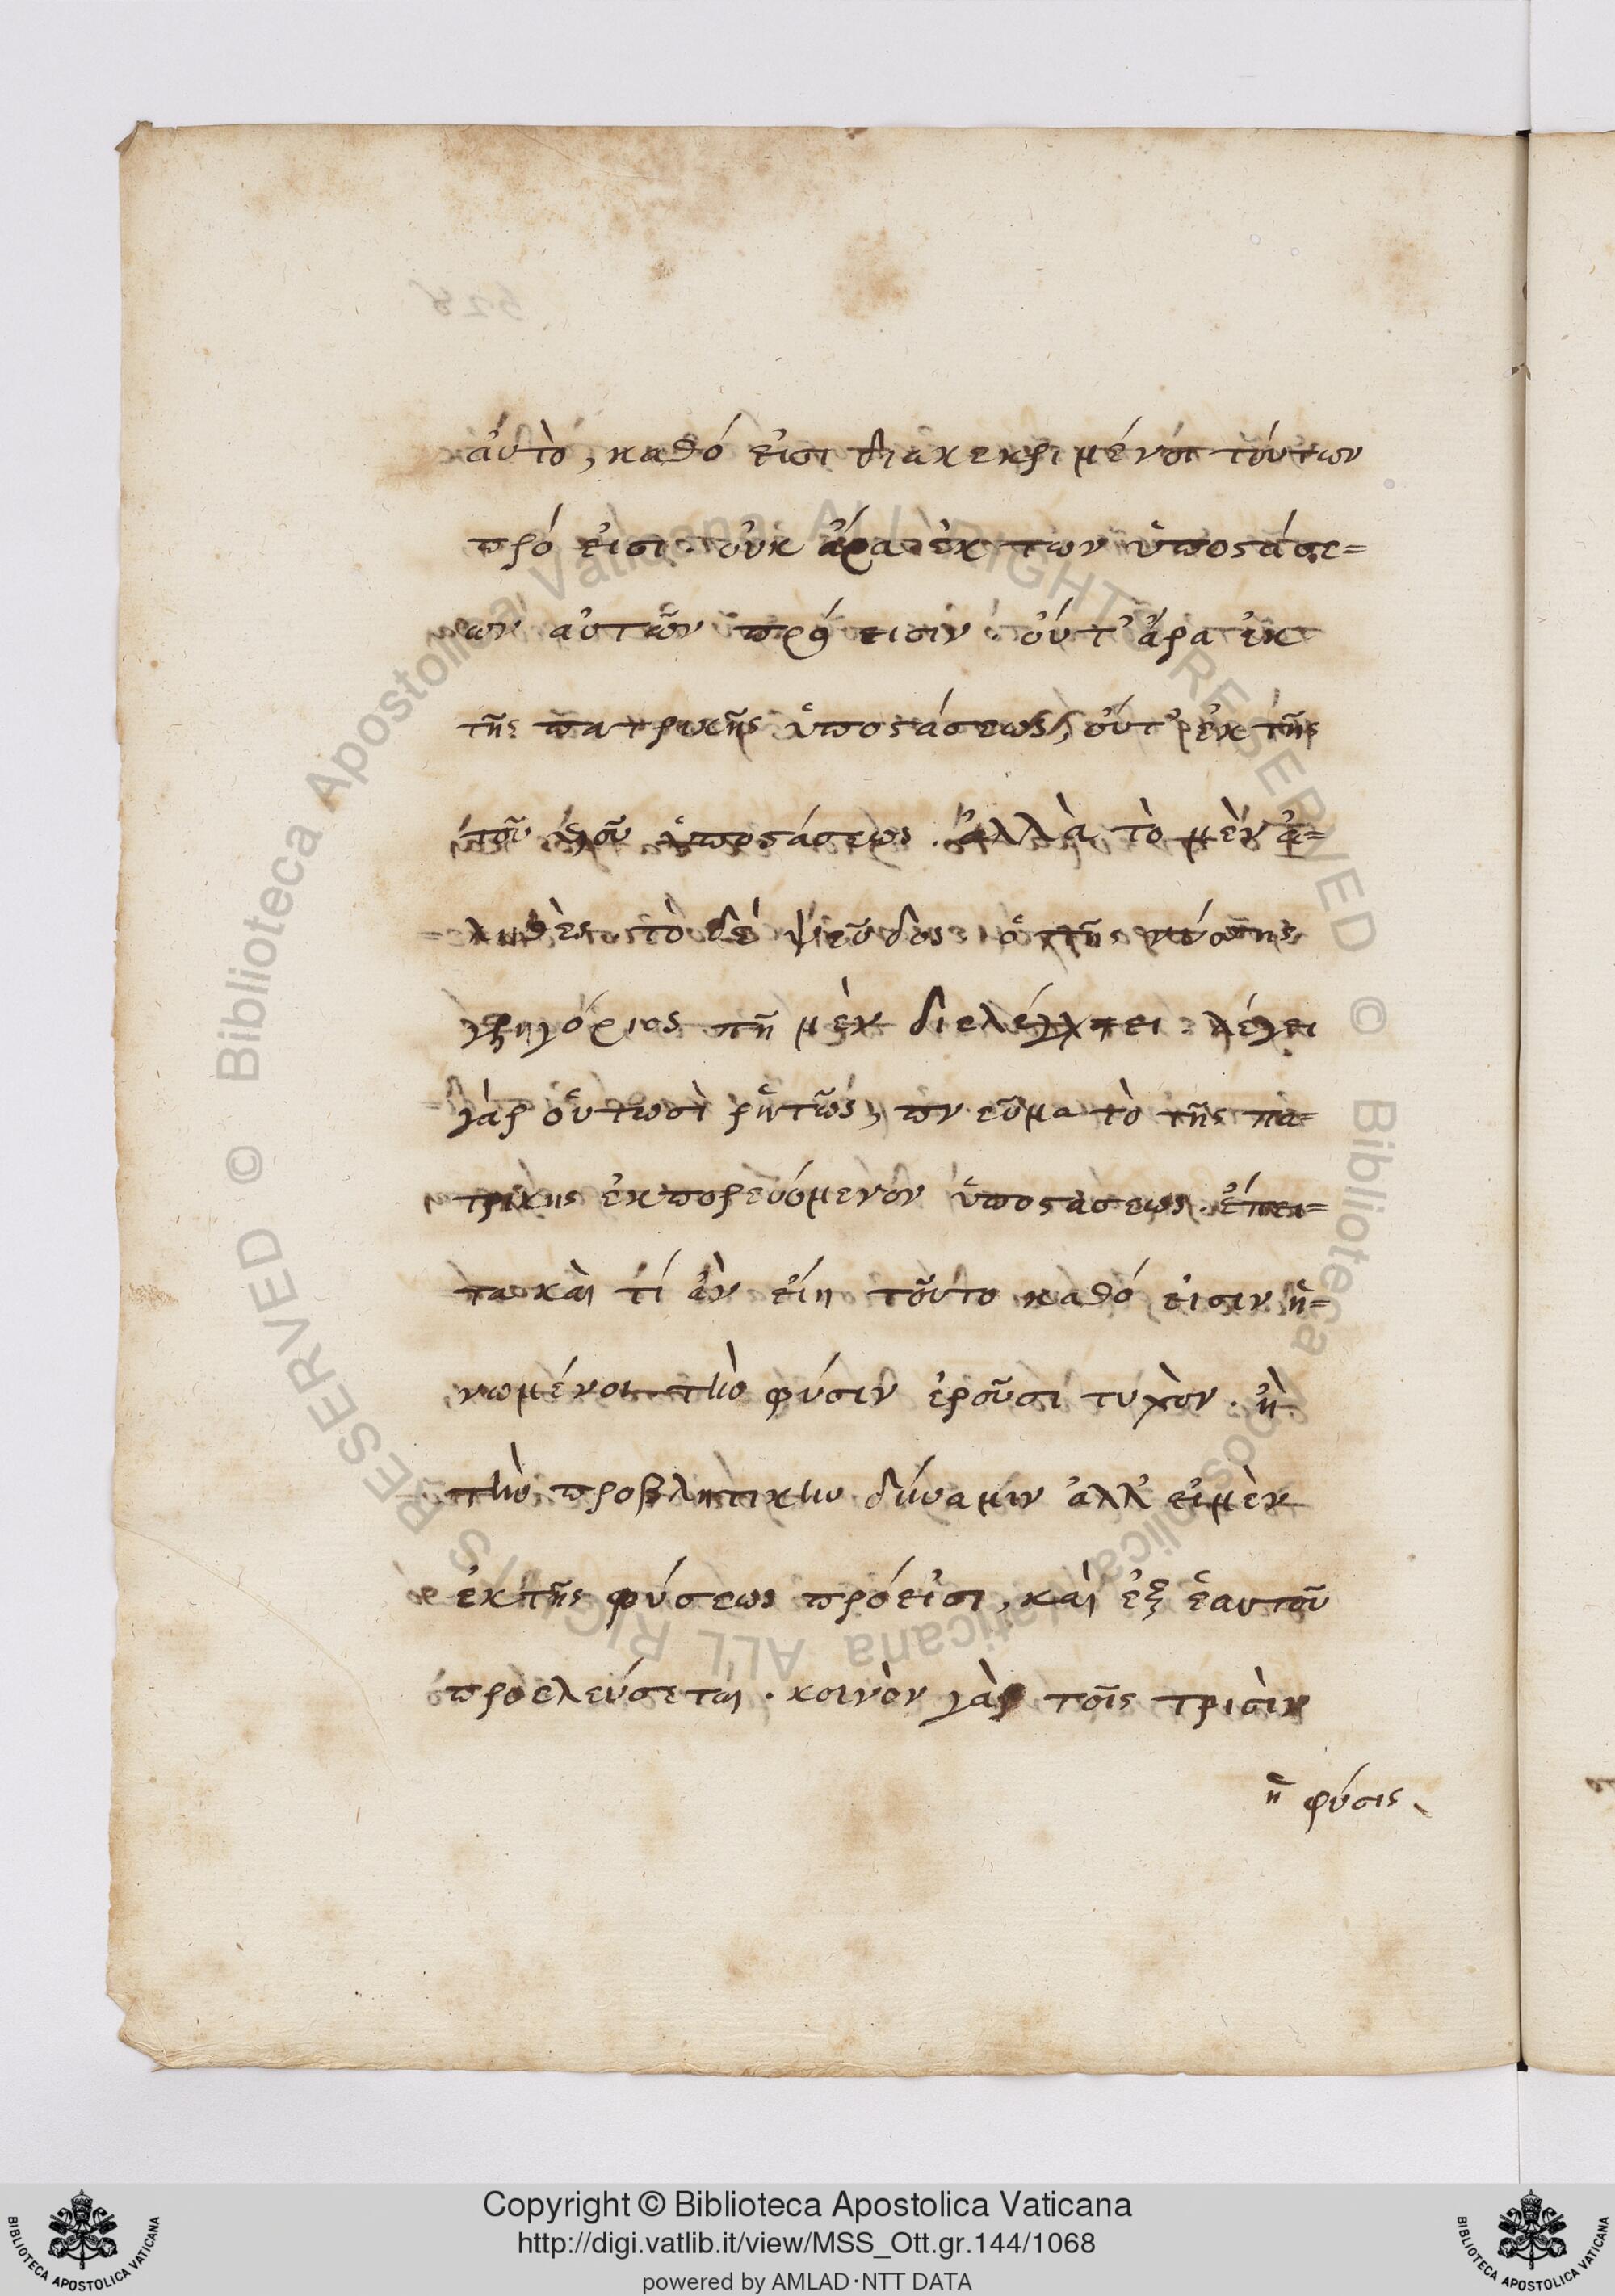 αὐτὸ, καθό εἰσι διακεκριμένοι τούτων
πρό εισι· οὐκ ἄρα ἐκ των ὑποστάσε=
ων αὐτῶν πρό εισιν οὔτ' ἄρα ἐκ
τῆς πατρικῆς ὑποστάσεως, οὔτ' ἐκ τῆς
τοῦ ὑοῦ ὑποστάσεως. ἀλλὰ τὸ μὲν ἀ=
ληθὲς τὸ δέ ψεῦδος· ὁ τῆς νύσσης
γρηγόριος πῆ μὲν διελέγχει· λέγει
γὰρ οὑτωσὶ ῥητῶς, πνεῦμα τὸ τῆς πα=
τρικης ἐκπορευόμενον ὑποστάσεως. ἔπει=
τα καὶ τί ἂν εἴη τοῦτο καθό εἰσιν ἡ=
νωμένοι τὴν φύσιν ἐροῦσι τυχὸν. ἢ
τὴν προβλητικην δύναμιν ἀλλ' εἰ μὲν
ἐκ τῆς φύσεως πρόεἰσι, καὶ ἐξ ἑαυτοῦ
προελεύσεται. κοινὸν γὰρ τοῖς τρισὶν
ἡ φύσις
Copyright © Biblioteca Apostolica Vaticana
http://digi.vatlib.it/view/MSS_Ott.gr.144/1068
powered by AMLAD·NTT DATA
BIBLIOTECA APOSTOLICA VATICANA
BIBLIOTECA APOSTOLICA VATICANA
© Biblioteca Apostolica Vaticana ALL RIGHTS RESERVED © Biblioteca Apostolica Vaticana ALL RIGHTS RESERVED